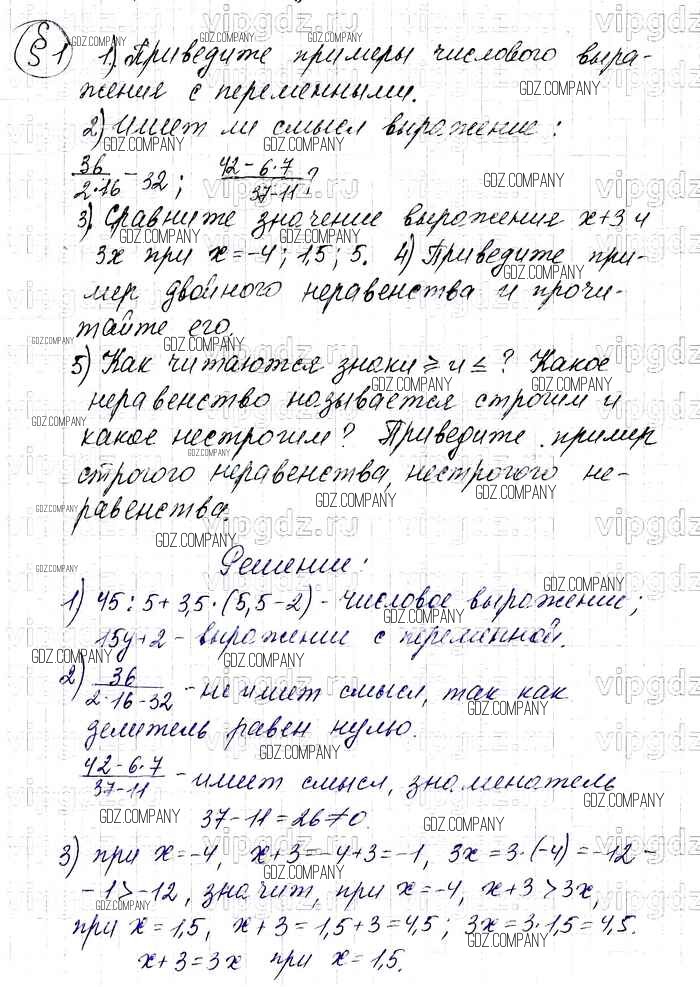 § 1 1) Приведите примеры числового выра-
жения с переменными.
2) Имеет ли смысл выражение:
36/2·16 - 32; 42-6·7/37-11?
3) Сравните значение выражения x+3 и
3x при x=-4; 1,5; 5. 4) Приведите при-
мер двойного неравенства и прочи-
тайте его.
5) Как читаются знаки ≥ и ≤? Какое
неравенство называется строгим и
какое нестрогим? Приведите пример
строгого неравенства, нестрогого не-
равенства.
Решение:
1) 45:5+3,5·(5,5-2) - числовое выражение;
15y+2 - выражении с переменной.
2) 36/2·16-32 - не имет смысл, так как
делитель равен нулю.
42-6·7/37-11 - имет смысл, знаменатель
37-11=26≠0.
3) при x=-4, x+3=-4+3=-1, 3x=3·(-4)=-12-
-1>-12, значит, при x=-4, x+3>3x,
при x=1,5, x+3=1,5+3=4,5; 3x=3·1,5=4,5.
x+3=3x при x=1,5.
GDZ.COMPANY
vipgdz.ru